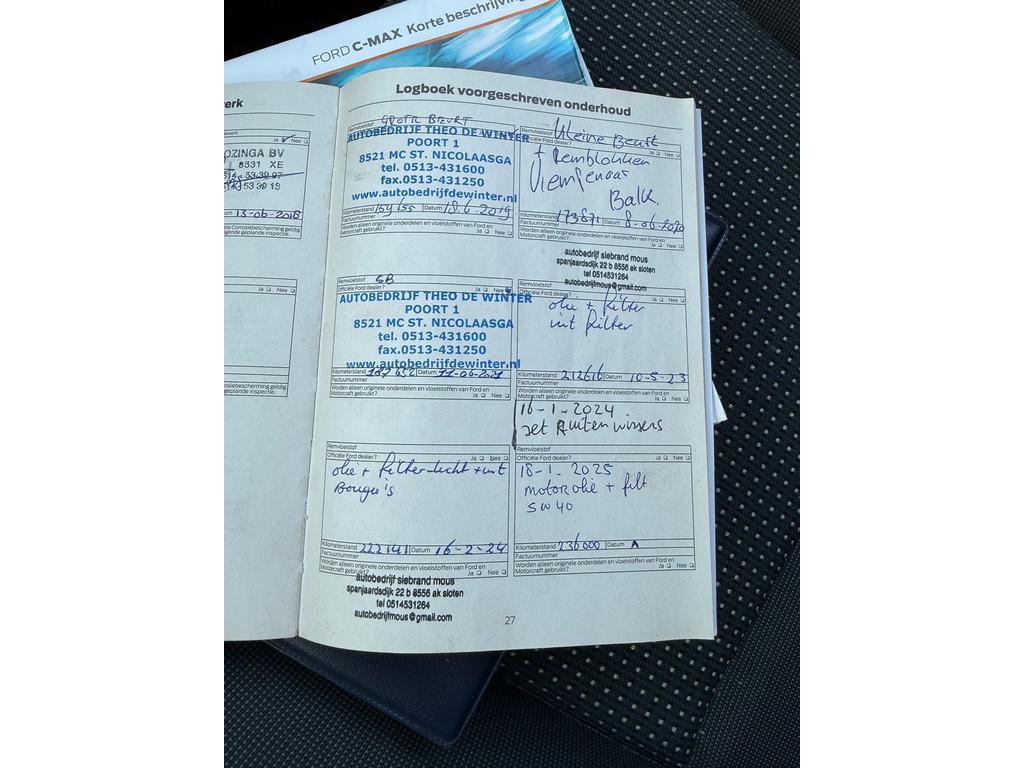 FORD C-MAX Korte beschrijving
erk
Logboek voorgeschreven onderhoud
Ja Nee
OZINGA BV
8531 XE
53 39 97
53 39 19
um 13-06-2018
tie Corrosiebescherming geldig
geplande inspectie.
Ja Nee
osiebescherming geldig
geplande inspectie.
Remvloeistof GROTE BEURT
AUTOBEDRIJF THEO DE WINTER
POORT 1
8521 MC ST. NICOLAASGA
tel. 0513-431600
fax.0513-431250
www.autobedrijfdewinter.nl
Kilometerstand 159155 Datum 18.6.2019
Factuurnummer
Worden alleen originele onderdelen en vloeistoffen van Ford en
Motorcraft gebruikt? Ja Nee
Remvloeistof Kleine Beurt
Officiële Ford dealer? Ja Nee
+ Remblokken
Balk.
Kilometerstand 173871 Datum 8-06-2020
Factuurnummer
Worden alleen originele onderdelen en vloeistoffen van Ford en
Motorcraft gebruikt? Ja Nee
autobedrijf siebrand mous
spanjaardsdijk 22 b 8556 ak sloten
tel 0514531264
autobedrijfmous@gmail.com
Remvloeistof GB
Officiële Ford dealer? Ja Nee
AUTOBEDRIJF THEO DE WINTER
POORT 1
8521 MC ST. NICOLAASGA
tel. 0513-431600
fax.0513-431250
www.autobedrijfdewinter.nl
Kilometerstand 187652 Datum 11-06-2021
Factuurnummer
Worden alleen originele onderdelen en vloeistoffen van Ford en
Motorcraft gebruikt? Ja Nee
Remvloeistof
Officiële Ford dealer? Ja Nee
olie + filter
int filter
Kilometerstand 212616 Datum 10-5-23
Factuurnummer
Worden alleen originele onderdelen en vloeistoffen van Ford en
Motorcraft gebruikt? Ja Nee
16-1-2024
set Ruiten wissers
Remvloeistof
Officiële Ford dealer? Ja Nee
olie + filter-lucht + int
Bougie's
Kilometerstand 222141 Datum 16-2-24
Factuurnummer
Worden alleen originele onderdelen en vloeistoffen van Ford en
Motorcraft gebruikt? Ja Nee
autobedrijf siebrand mous
spanjaardsdijk 22 b 8556 ak sloten
tel 0514531264
autobedrijfmous@gmail.com
Remvloeistof
Officiële Ford dealer? Ja Nee
18-1. 2025
motorolie + filt
5W40
Kilometerstand 236000 Datum
Factuurnummer
Worden alleen originele onderdelen en vloeistoffen van Ford en
Motorcraft gebruikt? Ja Nee
27